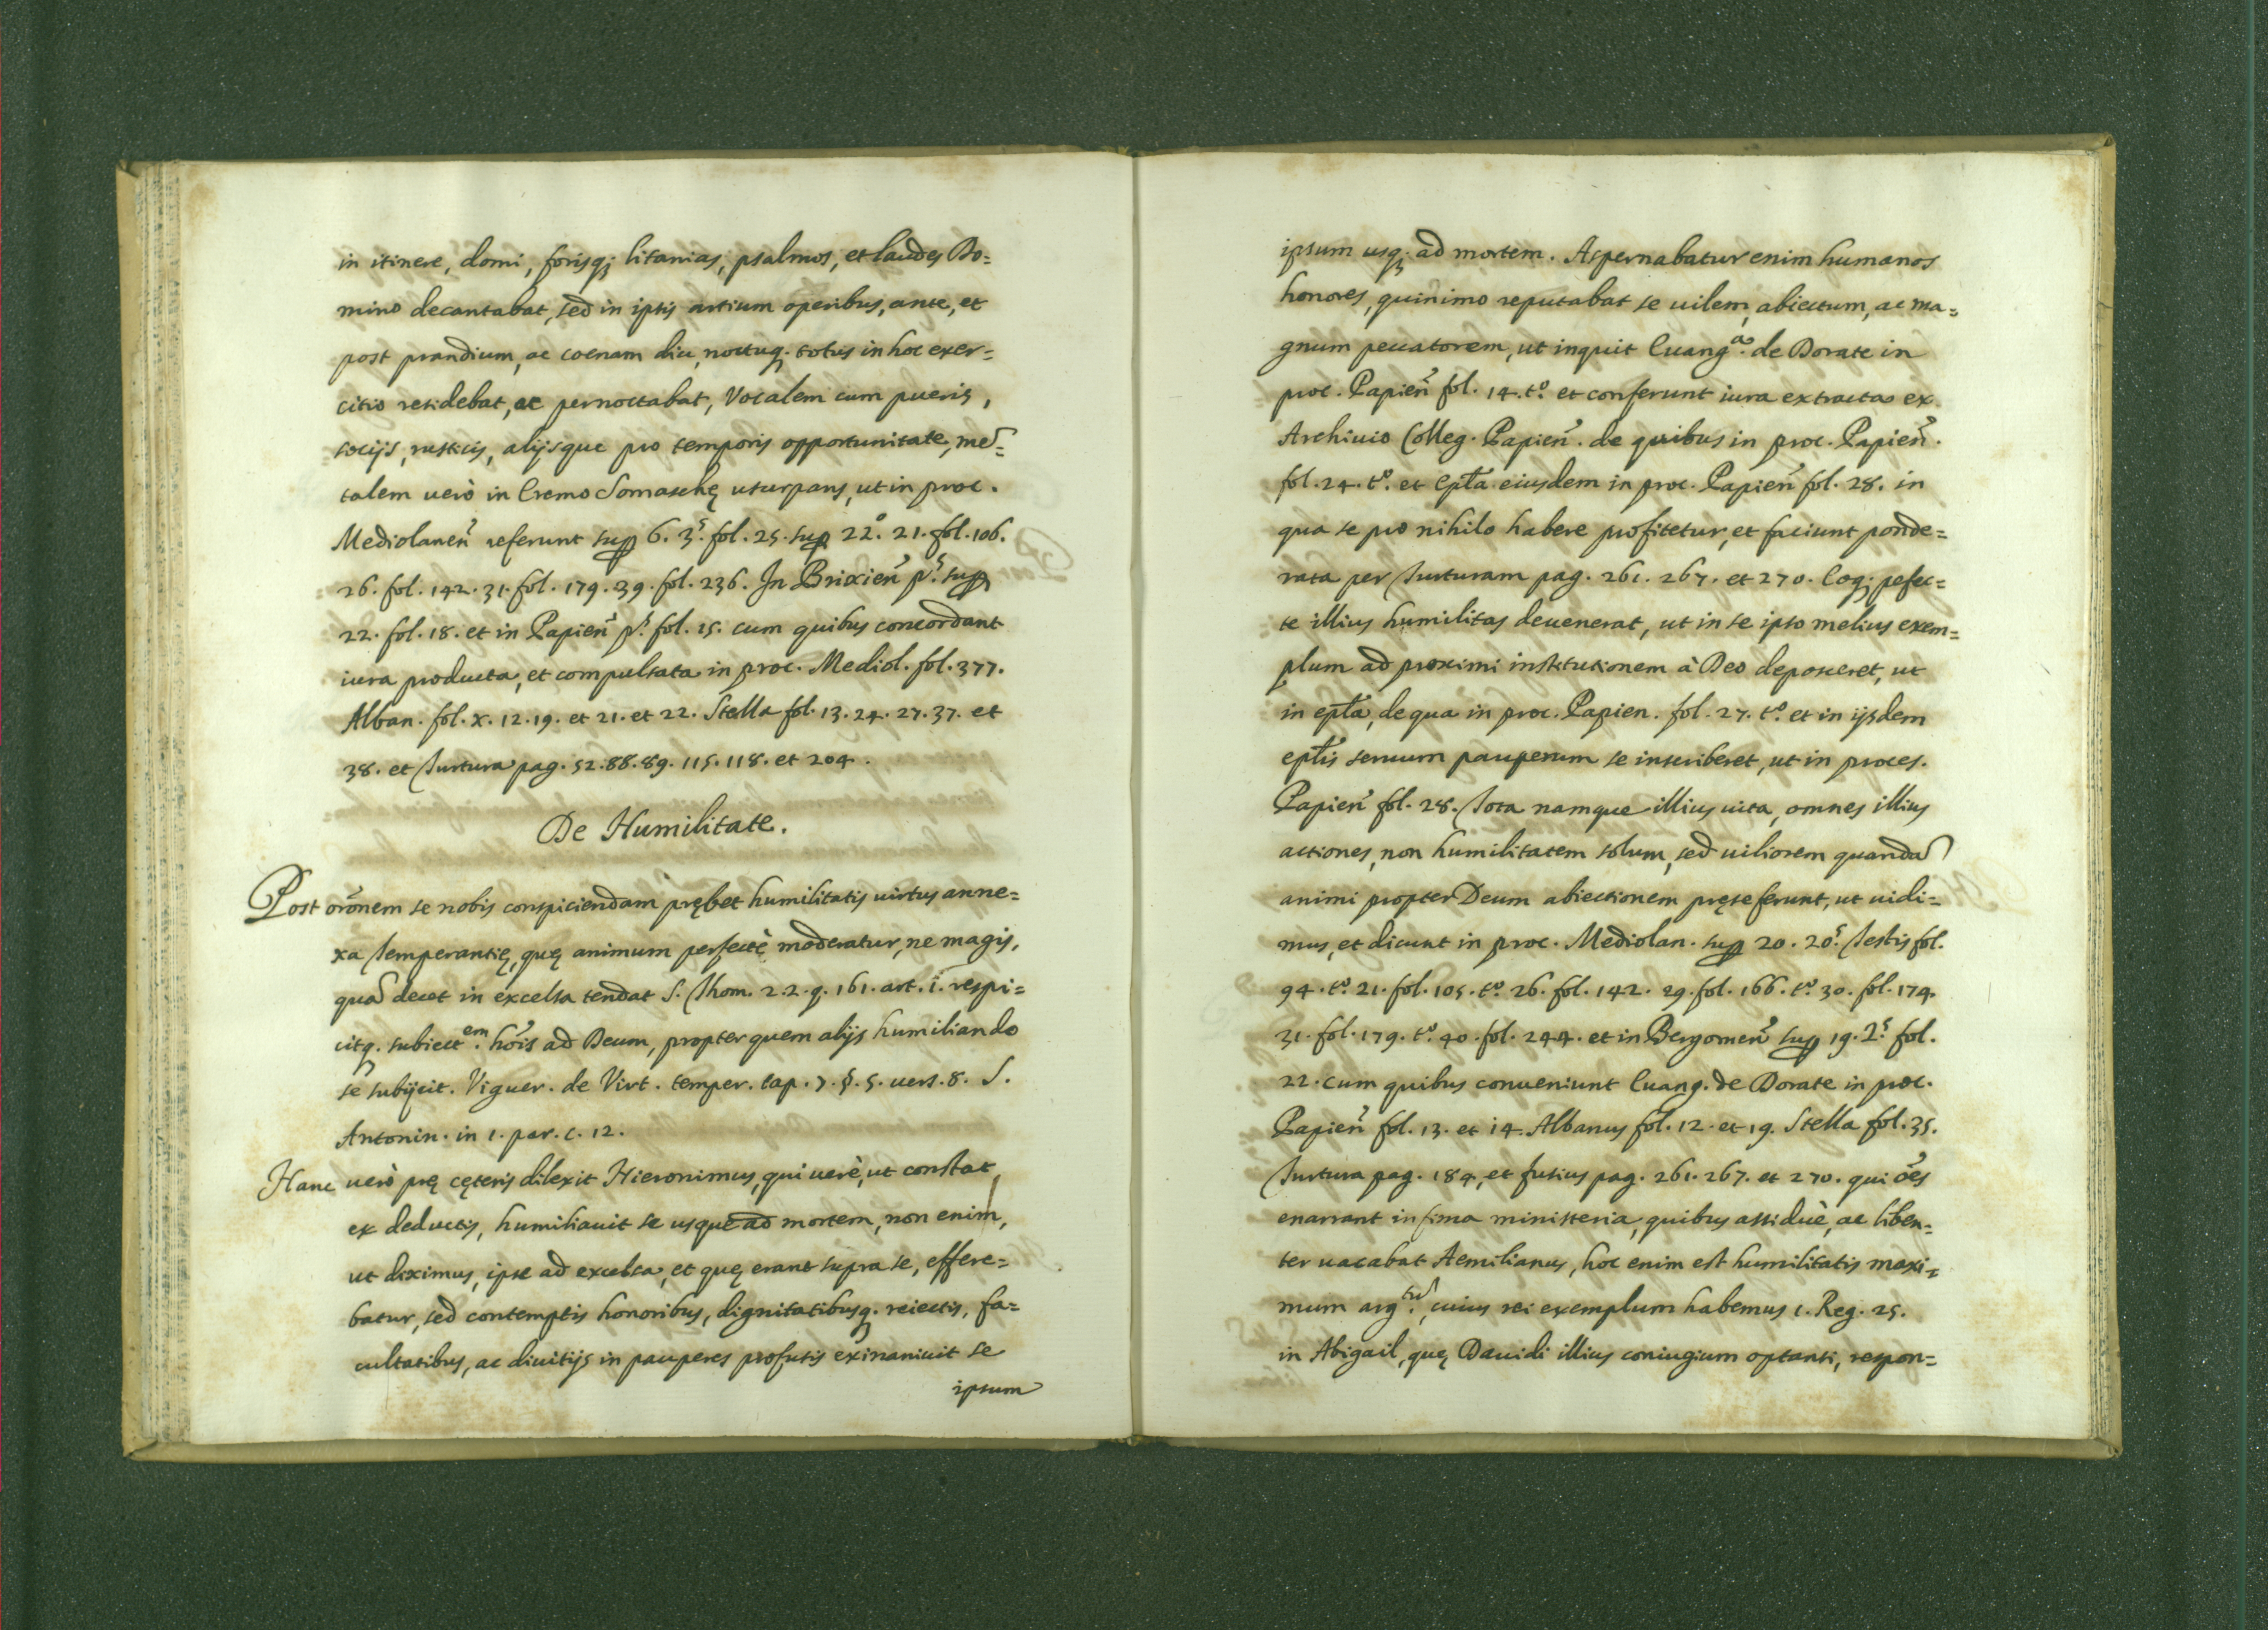 in itinere, domi, forisq; litanias, psalmos, et laudes Do=
mino decantabat, sed in ipsis artium operibus, ante, et
post prandium, ac coenam diu, noctuq. totus in hoc exer=
citio residebat, ac pernoctabat, Vocalem cum pueris,
socijs, rusticis, alijsque pro temporis opportunitate, mẽ=
talem uerò in Eremo Somaschę usurpans, ut in proc.
Mediolaneñ referunt sup 6. 3ˢ. fol. 25. sup 22º. 21. fol. 106.
26. fol. 142. 31. fol. 179. 39. fol. 236. In Brixieñ pˢ. sup
22. fol. 18. et in Papieñ pˢ. fol. 15. cum quibus concordant
iura producta, et compulsata in proc. Mediol. fol. 377.
Alban. fol. x. 12. 19. et 21. et 22. Stella fol. 13. 24. 27. 37. et
38. et Turtura pag. 52. 88. 89. 115. 118. et 204.
De Humilitate.
Post orõnem se nobis conspiciendam prębet humilitatis uirtus anne=
xa Temperantię, quę animum perfectè moderatur, ne magis,
quã decet in excelsa tendat S. Thom. 2. 2. q. 161. art. i. respi=
citq. subiectᵉᵐ. hoĩs ad Deum, propter quem alijs humiliando
se subijcit. Viguer. de Virt. temper. cap. 7. §. 5. uers. 8. S.
Antonin. in 1. par. c. 12.
Hanc uerò prę cęteris dilexit Hieronimus, qui uerè, ut constat,
ex deductis, humiliauit se usque ad mortem, non enim,
ut diximus, ipse ad excelsa, et quę erant supra se, effere=
batur, sed contemptis honoribus, dignitatibusq. reiectis, fa=
cultatibus, ac diuitijs in pauperes profusis exinaniuit se
ipsum
ipsum usq; ad mortem. Aspernabatur enim humanos
honores, quinimo reputabat se uilem, abiectum, ac ma=
gnum peccatorem, ut inquit Euangᵃ. de Dorate in
proc. Papieñ fol. 14. tº. et conferunt iura extracta ex
Archiuio Colleg. Papieñ. de quibus in proc. Papieñ.
fol. 24. tº. et Epľa eiusdem in proc. Papieñ fol. 28. in
qua se pro nihilo habere profitetur, et faciunt ponde=
rata per Turturam pag. 261. 267. et 270. Eoq; pefec=
te illius humilitas deuenerat, ut in se ipso melius exem=
plum ad proximi institutionem à Deo deposceret, ut
in epľa, de qua in proc. Papien. fol. 27. tº. et in ijsdem
epľis seruum pauperum se inscriberet, ut in proces.
Papieñ fol. 28. Tota namque illius uita, omnes illius
actiones, non humilitatem solum, sed uiliorem quandã
animi propter Deum abiectionem pręseferunt, ut uidi=
mus, et dicunt in proc. Mediolan. sup 20. 20ˢ. Testis fol.
94. tº. 21. fol. 105. tº. 26. fol. 142. 29. fol. 166. tº. 30. fol. 174.
31. fol. 179. tº. 40. fol. 244. et in Bergomeñ sup 19. 2ˢ. fol.
22. cum quibus conueniunt Euang. de Dorate in proc.
Papieñ fol. 13. et i4. Albanus fol. 12. et 19. Stella fol. 35.
Turtura pag. 184, et fusius pag. 261. 267. et 270. qui oẽs
enarrant infima ministeria, quibus assiduè, ac liben=
ter uacabat Aemilianus, hoc enim est humilitatis maxi=
mum argᵗũ., cuius rei exemplum habemus 1. Reg. 25.
in Abigail, quę Dauidi illius coniugium optanti, respon=